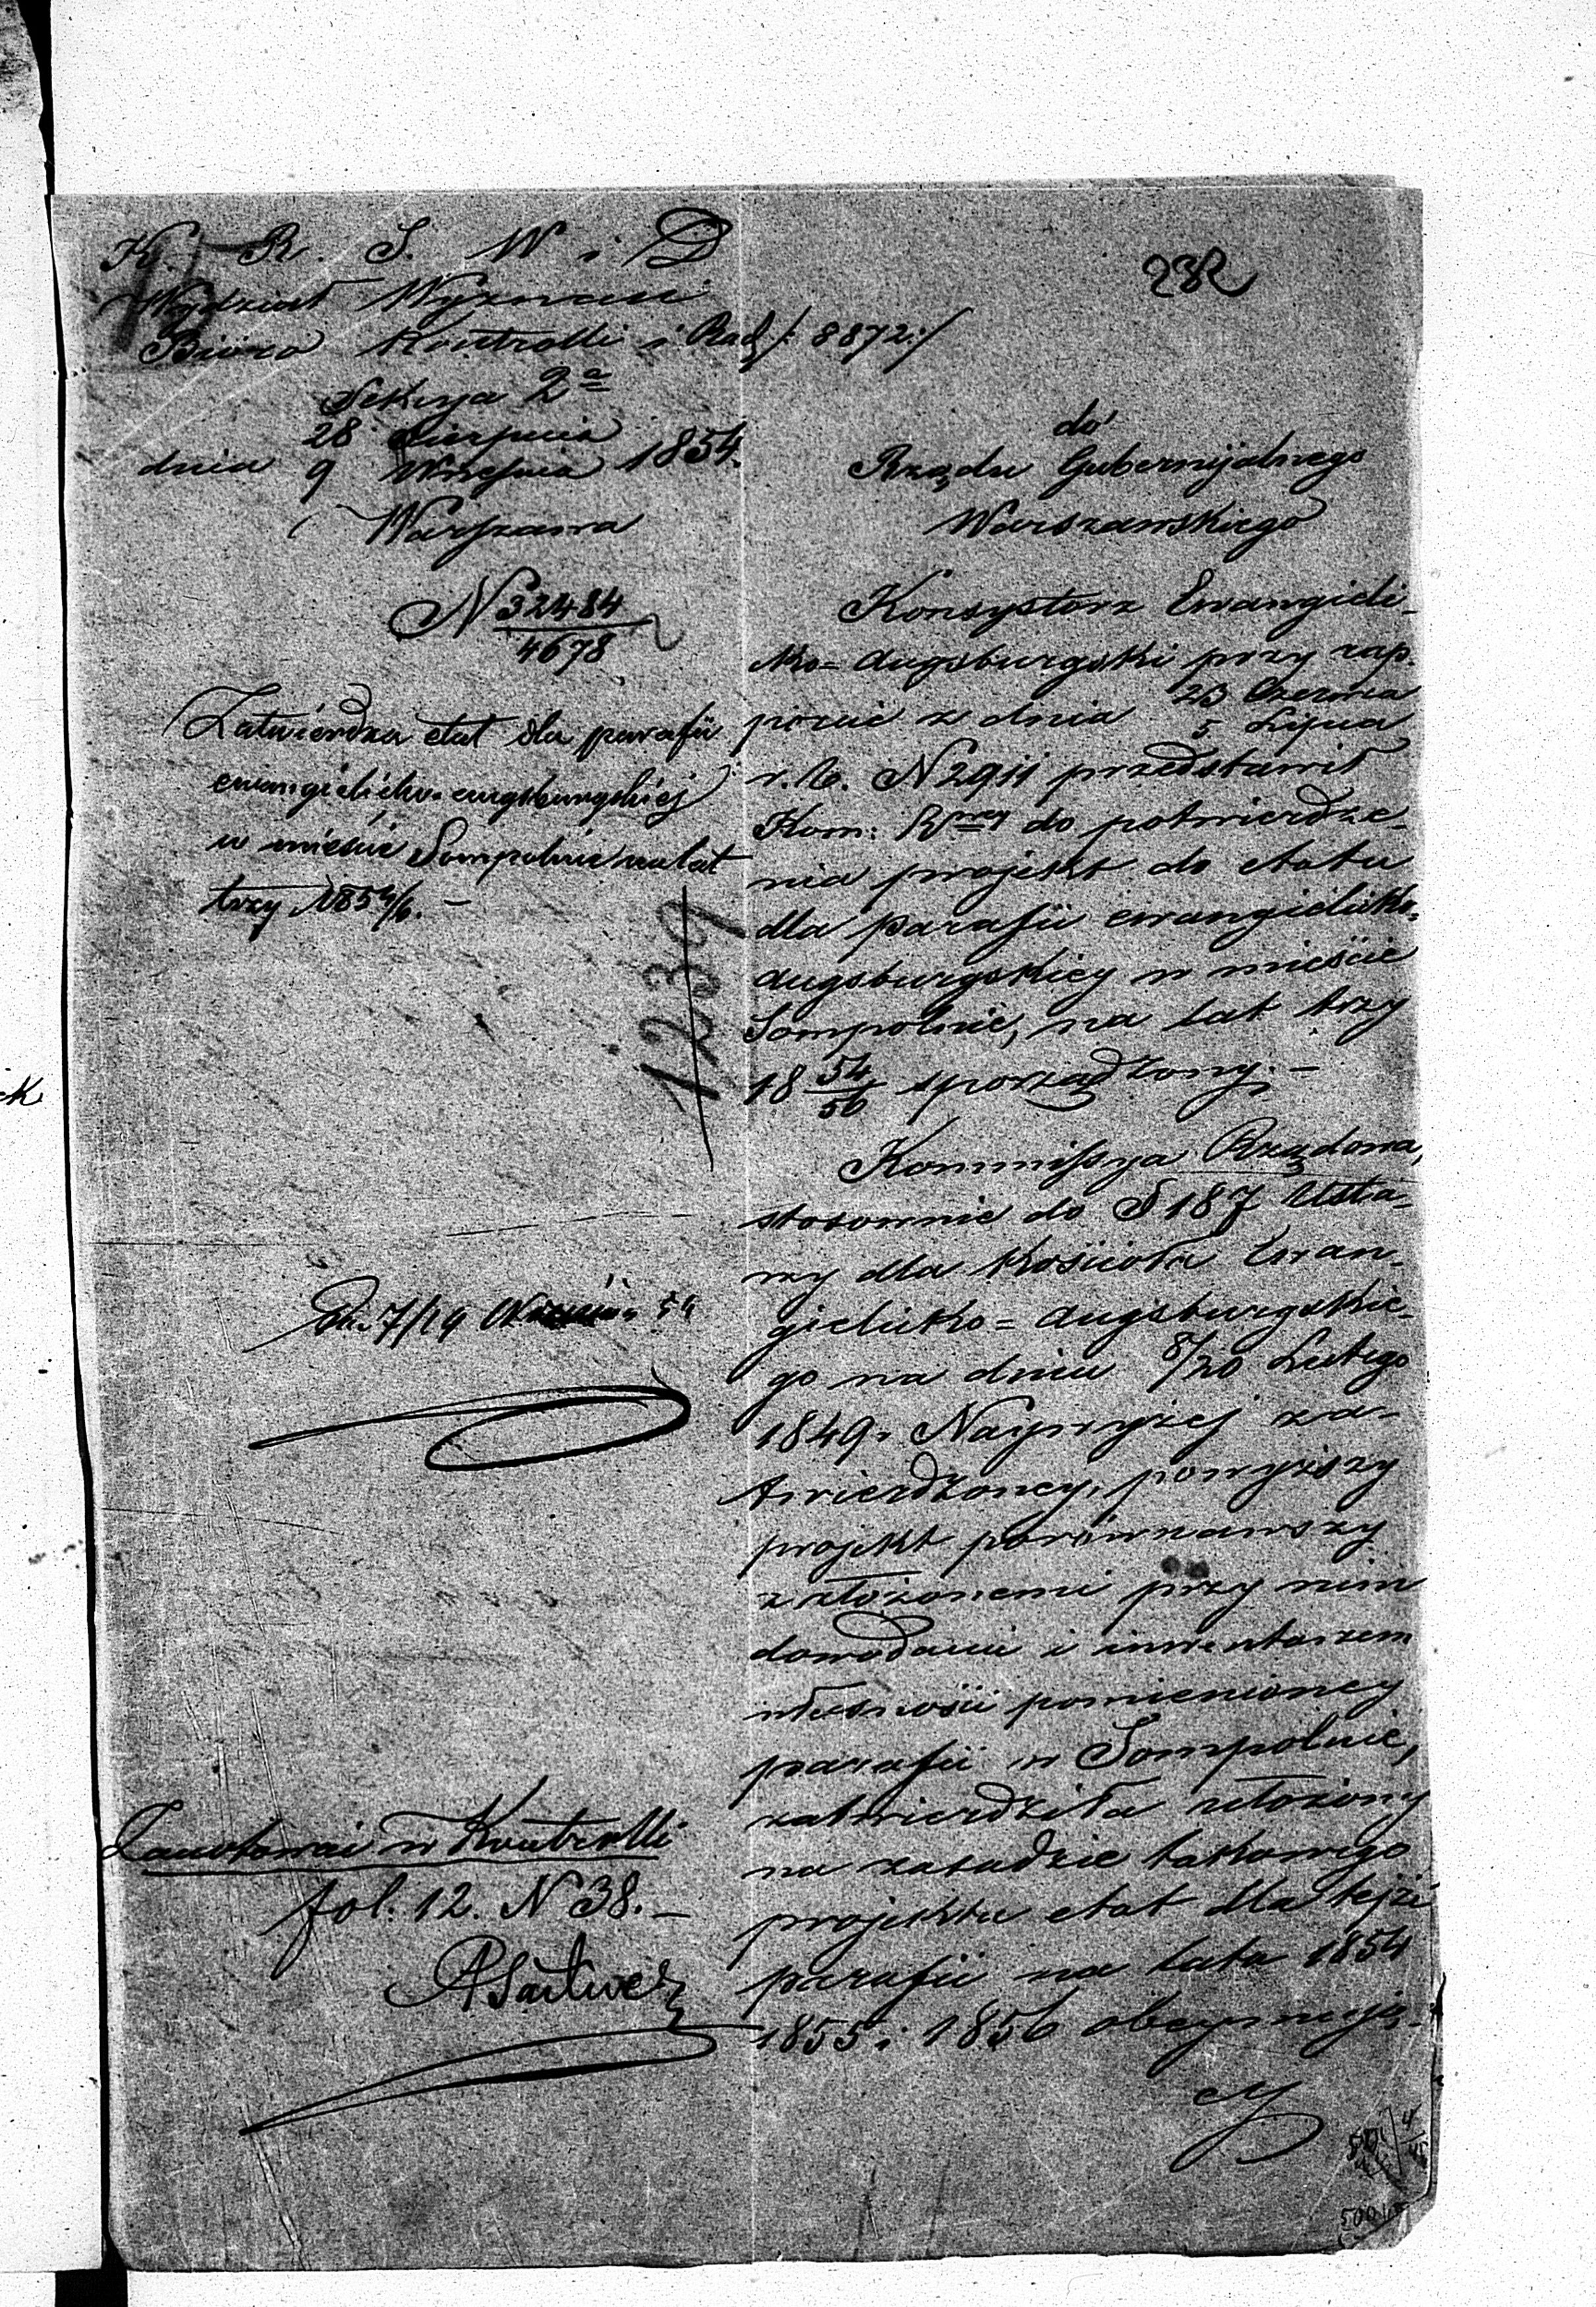 232
K. R. S. W i D
Wydział Wyznań
Biuro Kontrolli i Rach /: 8872 :/
Sekcya 2a
dnia 28 Sierpnia / 9 Września 1854.
Warszawa
N 32484/4678
Zatwierdza etat dla parafii
ewangielicko-augsburgskiej
w mieście Sompolnie na lat
trzy 1854/6. –
1239
7/19 54
Zanotować w Kontrolli
fol. 12. N 38. –
do
Rządu Gubernijalnego
Warszawskiego
Konsystorz Ewangieli-
cko=Augsburgski przy rap-
porcie z dnia 23 Czerwca / 5 Lipca
r. b. N 2911 przedstawił
Kom: Rwey do potwierdze-
nia projekt do etatu
dla parafii ewangielicko-
augsburgskiey w mieście
Sompolnie, na lat trzy
18 54/56 sporządzony. –
Kommissya Rządowa,
stosownie do § 187 Usta-
wy dla Kościoła Ewan-
gielicko=Augsburgskie-
go na dniu 8/20 Lutego
1849 r. Naywyżej za-
twierdzoney, powyższy
projekt porównawszy
z złożonemi przy nim
dowodami i inwentarzem
własności pomienioney
parafii w Sompolnie,
zatwierdziła ułożony
na zasadzie takowego
projektu etat dla tejże
parafii na lata 1854
1855 i 1856 obeymują-
cy